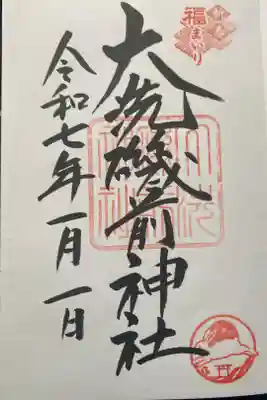 福まいり
大洗磯前神社
令和七年一月一日